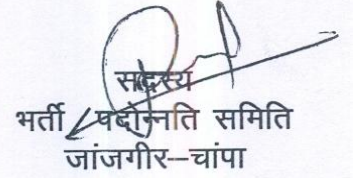 सदस्य
भर्ती / पदोन्नति समिति
जांजगीर--चांपा